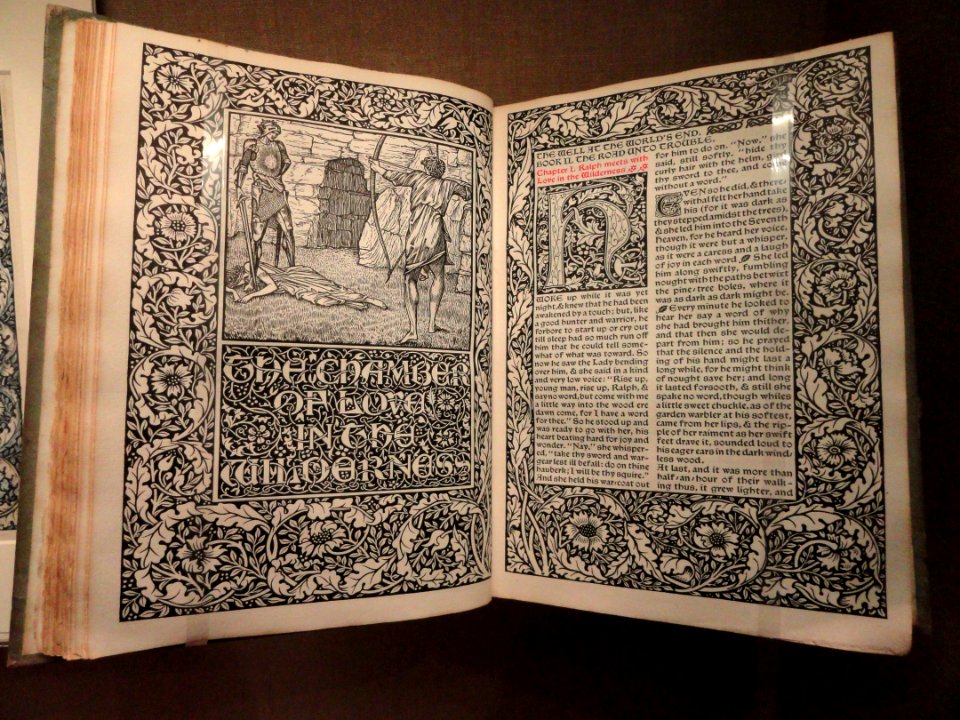 THE CHAMBER
OF LOVE
IN THE
WILDERNESS
THE WELL AT THE WORLD'S END.
BOOK II. THE ROAD UNTO TROUBLE.
Chapter I. Ralph meets with
Love in the Wilderness
N
WOKE up while it was yet
night, & knew that he had been
awakened by a touch; but, like
a good hunter and warrior, he
forbore to start up or cry out
till sleep had so much run off
him that he could tell some-
what of what was toward. So
now he saw the Lady bending
over him, & she said in a kind
and very low voice: "Rise up,
young man, rise up, Ralph, &
say no word, but come with me
a little way into the wood ere
dawn come, for I have a word
for thee." So he stood up and
was ready to go with her, his
heart beating hard for joy and
wonder. "Nay," she whisper-
ed, "take thy sword and war-
gear lest ill befall: do on thine
hauberk; I will be thy squire."
And she held his war-coat out
for him to do on. "Now," she
said, still softly, "hide thy
curly hair with the helm, gird
thy sword to thee, and come
without a word."
EVEN so he did, & there-
withal felt her hand take
his (for it was dark as
they stepped amidst the trees),
& she led him into the Seventh
Heaven, for he heard her voice,
though it were but a whisper,
as it were a caress and a laugh
of joy in each word. She led
him along swiftly, fumbling
nought with the paths betwixt
the pine-tree boles, where it
was as dark as dark might be.
Every minute he looked to
hear her say a word of why
she had brought him thither,
and that then she would de-
part from him; so he prayed
that the silence and the hold-
ing of his hand might last a
long while, for he might think
of nought save her; and long
it lasted forsooth, & still she
spake no word, though whiles
a little sweet chuckle, as of the
garden warbler at his softest,
came from her lips, & the rip-
ple of her raiment as her swift
feet drave it, sounded loud to
his eager ears in the dark wind-
less wood.
At last, and it was more than
half-an-hour of their walk-
ing thus, it grew lighter, and